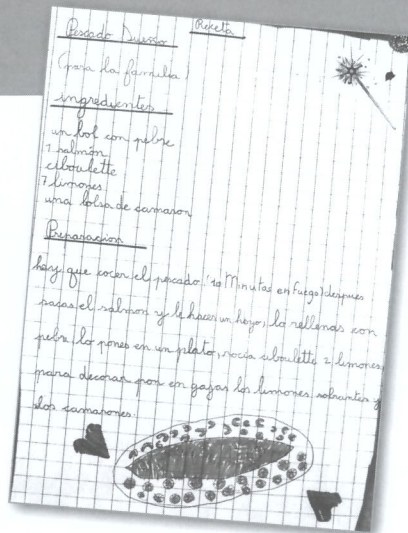 Receta
Pescado
(para la familia)
ingredientes
un bol con pebre
1 salmón
ciboulette
7 limones
una bolsa de camaron
Preparacion
hay que cocer el pescado (10 Minutos en Fuego) despues
sacas el salmon y le haces un hoyo, lo rellenas con
pebre lo pones en un plato, rocia ciboulette 2 limones,
para decorar pon en gajas los limones sobrantes y
los camarones.